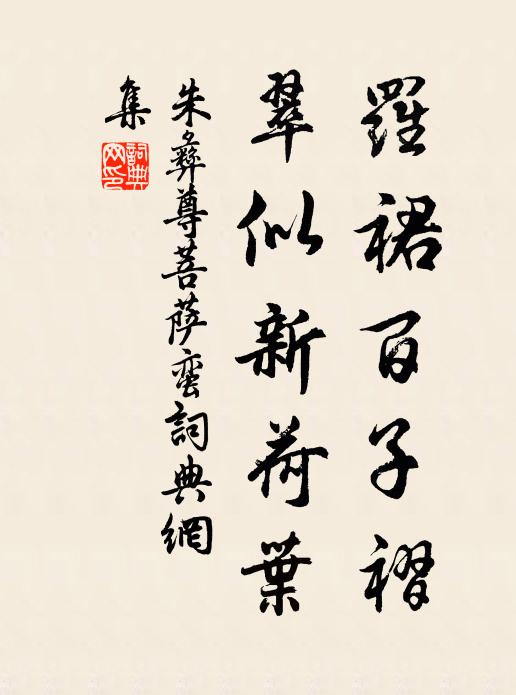 羅裙百子褶
翠似新荷葉
朱彝尊菩薩蠻詞典網
集
詞典
网印